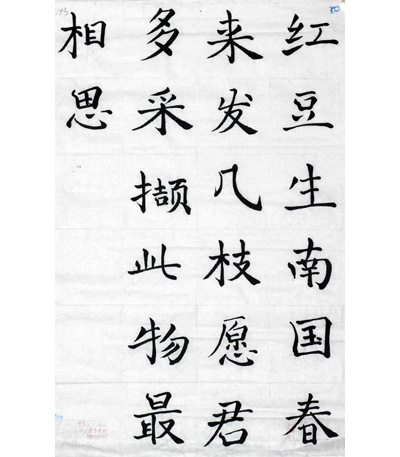 红豆生南国春
来发几枝愿君
多采撷此物最
相思